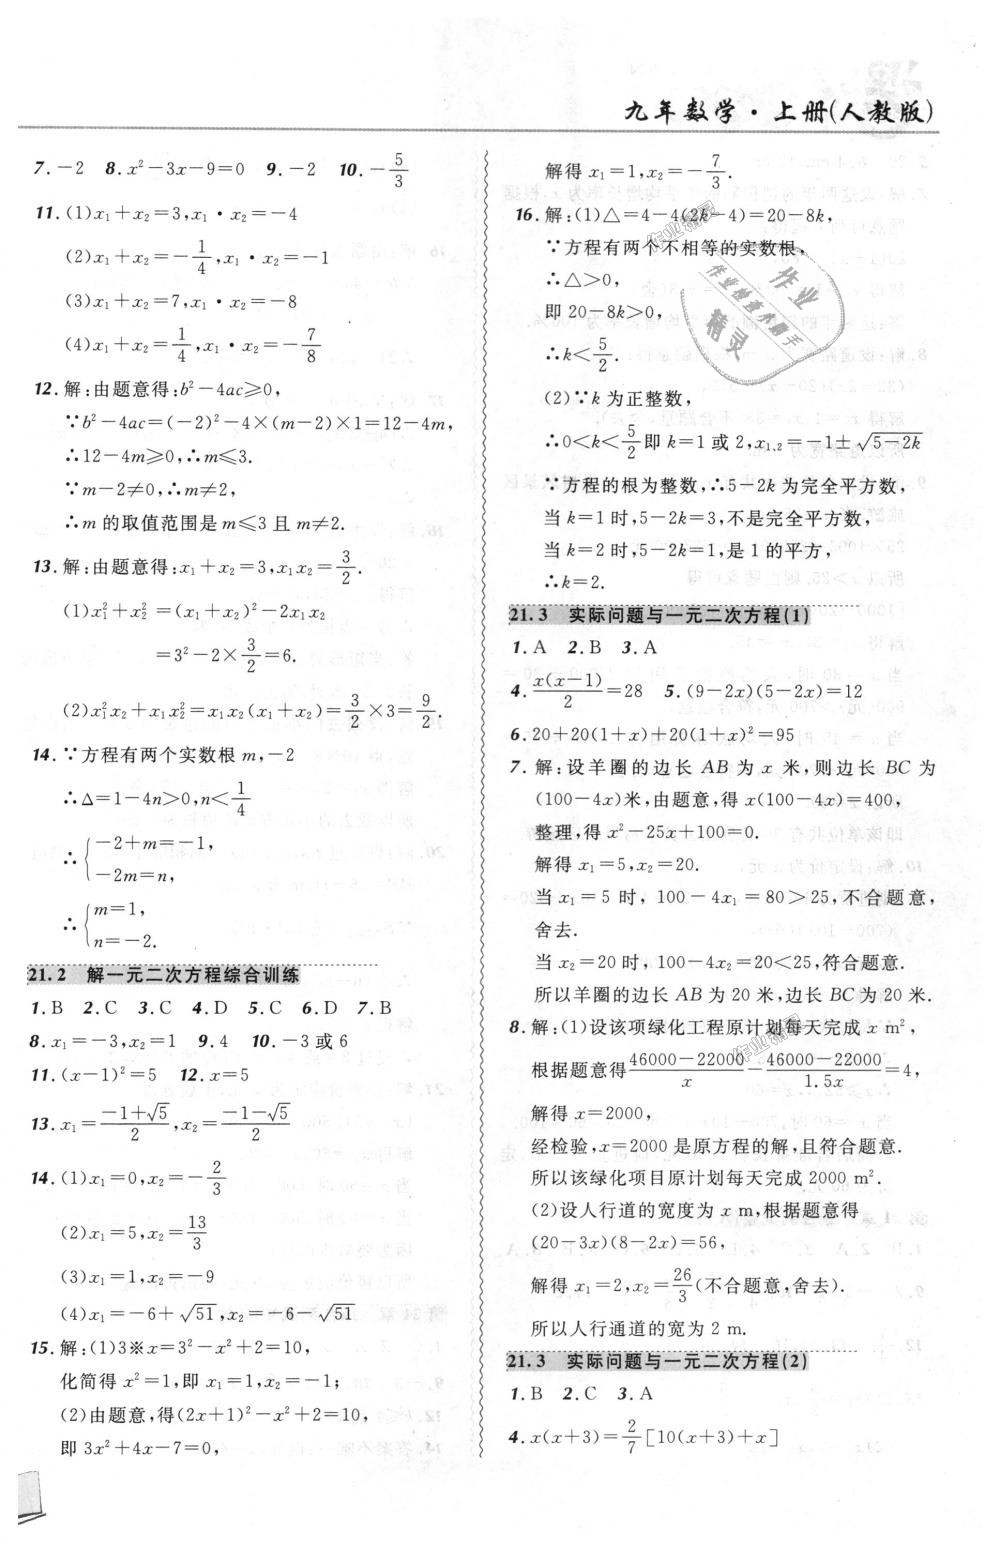 九年数学·上册(人教版)
7.－2 8.x²－3x－9＝0 9.－2 10.－5/3
11.(1)x₁＋x₂＝3,x₁·x₂＝－4
(2)x₁＋x₂＝－1/4,x₁·x₂＝－1
(3)x₁＋x₂＝7,x₁·x₂＝－8
(4)x₁＋x₂＝1/4,x₁·x₂＝－7/8
12.解:由题意得:b²－4ac⩾0,
∵b²－4ac＝(－2)²－4×(m－2)×1＝12－4m,
∴12－4m⩾0,∴m⩽3.
∵m－2≠0,∴m≠2,
∴m的取值范围是m⩽3且m≠2.
13.解:由题意得:x₁＋x₂＝3,x₁x₂＝3/2.
(1)x₁²＋x₂²＝(x₁＋x₂)²－2x₁x₂
＝3²－2×3/2＝6.
(2)x₁²x₂＋x₁x₂²＝x₁x₂(x₁＋x₂)＝3/2×3＝9/2.
14.∵方程有两个实数根m,－2
∴Δ＝1－4n>0,n<1/4
∴{－2＋m＝－1,
－2m＝n,
∴{m＝1,
n＝－2.
21.2 解一元二次方程综合训练
1.B 2.C 3.C 4.D 5.C 6.D 7.B
8.x₁＝－3,x₂＝1 9.4 10.－3或6
11.(x－1)²＝5 12.x＝5
13.x₁＝(－1＋√5)/2,x₂＝(－1－√5)/2
14.(1)x₁＝0,x₂＝－2/3
(2)x₁＝5,x₂＝13/3
(3)x₁＝1,x₂＝－9
(4)x₁＝－6＋√51,x₂＝－6－√51
15.解:(1)3※x＝3²－x²＋2＝10,
化简得x²＝1,即x₁＝1,x₂＝－1;
(2)由题意,得(2x＋1)²－x²＋2＝10,
即3x²＋4x－7＝0,
解得x₁＝1,x₂＝－7/3.
16.解:(1)△＝4－4(2k－4)＝20－8k,
∵方程有两个不相等的实数根,
∴△>0,
即20－8k>0,
∴k<5/2.
(2)∵k为正整数,
∴0<k<5/2即k＝1或2,x₁,₂＝－1±√5－2k
∵方程的根为整数,∴5－2k为完全平方数,
当k＝1时,5－2k＝3,不是完全平方数,
当k＝2时,5－2k＝1,是1的平方,
∴k＝2.
21.3 实际问题与一元二次方程(1)
1.A 2.B 3.A
4.x(x－1)/2＝28 5.(9－2x)(5－2x)＝12
6.20＋20(1＋x)＋20(1＋x)²＝95
7.解:设羊圈的边长AB为x米,则边长BC为
(100－4x)米,由题意,得x(100－4x)＝400,
整理,得x²－25x＋100＝0.
解得x₁＝5,x₂＝20.
当x₁＝5时,100－4x₁＝80>25,不合题意,
舍去.
当x₂＝20时,100－4x₂＝20<25,符合题意.
所以羊圈的边长AB为20米,边长BC为20米.
8.解:(1)设该项绿化工程原计划每天完成x m²,
根据题意得(46000－22000)/x－(46000－22000)/1.5x＝4,
解得x＝2000,
经检验,x＝2000是原方程的解,且符合题意.
所以该绿化项目原计划每天完成2000 m².
(2)设人行道的宽度为x m,根据题意得
(20－3x)(8－2x)＝56,
解得x₁＝2,x₂＝26/3(不合题意,舍去).
所以人行通道的宽为2 m.
21.3 实际问题与一元二次方程(2)
1.B 2.C 3.A
4.x(x＋3)＝2/7[10(x＋3)＋x]
作业精灵
作业
作业检查小助手
精灵
作业精灵